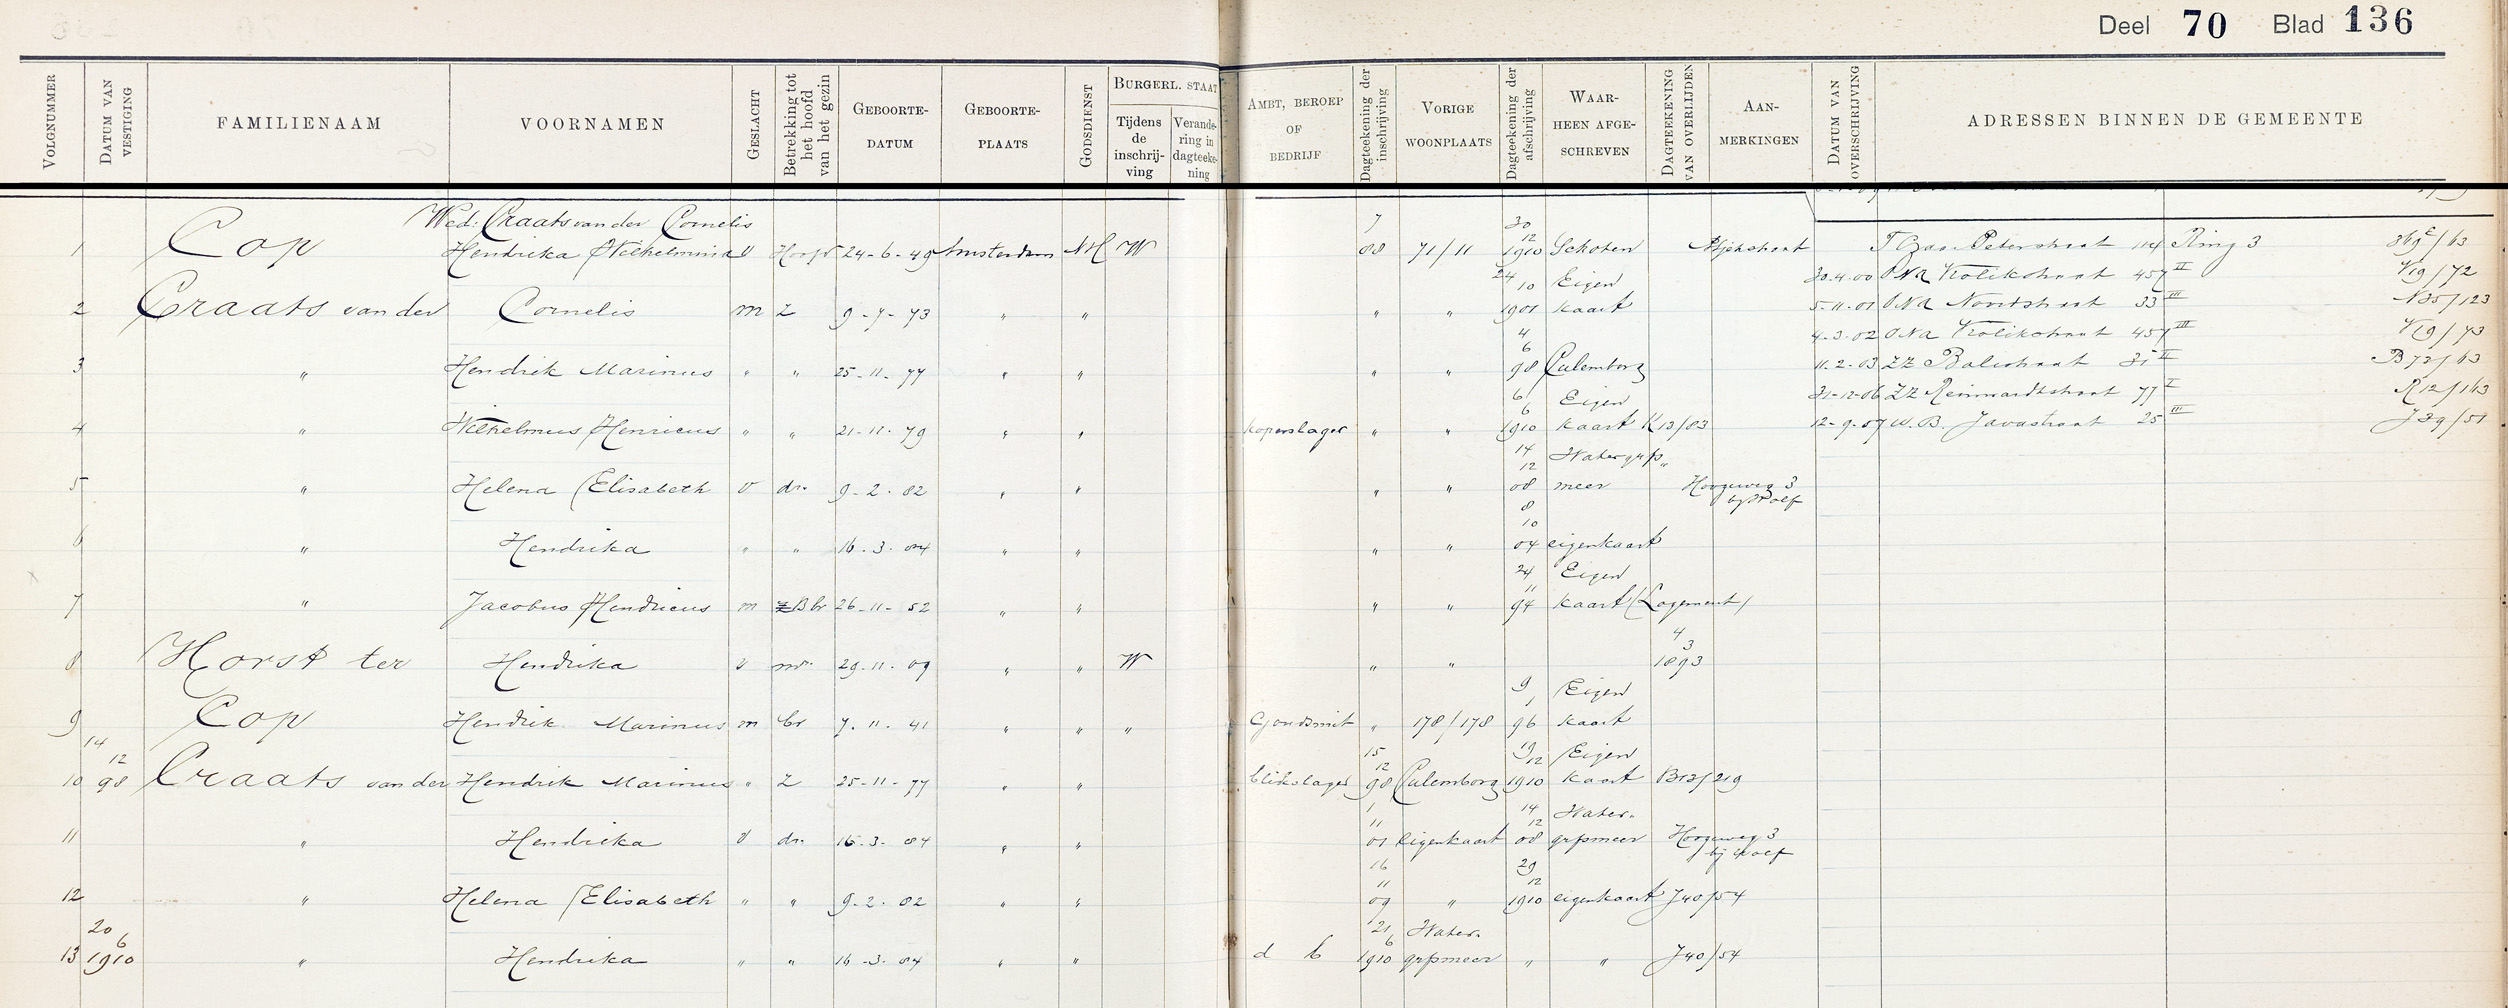 Deel 70 Blad 136
VOLGNUMMER
DATUM VAN VESTIGING
FAMILIENAAM
VOORNAMEN
GESLACHT
Betrekking tot het hoofd van het gezin
GEBOORTE-DATUM
GEBOORTE-PLAATS
GODSDIENST
BURGERL. STAAT
Tijdens de inschrij-ving
Verande-ring in dagteeke-ning
AMBT, BEROEP OF BEDRIJF
Dagteekening der inschrijving
VORIGE WOONPLAATS
Dagteekening der afschrijving
WAAR-HEEN AFGE-SCHREVEN
DAGTEEKENING VAN OVERLIJDEN
AAN-MERKINGEN
DATUM VAN OVERSCHRIJVING
ADRESSEN BINNEN DE GEMEENTE
Wed: Craats van der Cornelis
1 Cop Hendrika Wilhelmina v Hoofd 24-6-49 Amsterdam NH W 7 88 71/11 30 12 1910 Schoten
2 Craats van der Cornelis m Z 9-7-73 " " " " 24 10 1901 Eigen kaart
3 " Hendrik Marinus " " 25-11-77 " " " " 4 6 98 Culemborg
4 " Wilhelmus Henricus " " 21-11-79 " " koperslager " " 6 6 1910 Eigen kaart K13/83
5 " Helena Elisabeth v dr. 9-2-82 " " " " 14 12 08 Watergrfs meer Hoogeweg 3
6 " Hendrika " " 16-3-84 " " " " 8 10 04 eigenkaart
7 " Jacobus Hendricus m Z Bbr 26-11-52 " " " " 24 11 94 Eigen kaart (Logement)
8 Horst ter Hendrika v mr. 29-11-09 " " W " " 4 3 1893
9 Cop Hendrik Marinus m br 7-11-41 " " " Goudsmit " 178/178 9 1 96 Eigen kaart
10 14 12 98 Craats van der Hendrik Marinus " Z 25-11-77 " " blikslager 15 12 98 Culemborg 19 12 1910 Eigen kaart B13/219
11 " Hendrika v dr. 16-3-84 " " 1 11 01 Eigenkaart 14 12 08 Water-grfsmeer Hoogeweg 3
12 " Helena Elisabeth " " 9-2-82 " " 16 11 09 " 29 12 1910 eigenkaart J40/54
13 20 6 1910 " Hendrika " " 16-3-84 " " d b 21 6 1910 Water-grfsmeer " " J40/54
Czaar Peterstraat 114 Ring 3
30-4-00 Krolikstraat 457 II V19/72
5-11-01 33 III N35/123
4-3-02 Krolikstraat 457 III V19/73
11-2-03 ZZ Balistraat 31 II B72/63
31-12-06 ZZ Reinwardtstraat 77 I R12/163
12-9-07 W.B. Javastraat 25 III J39/51